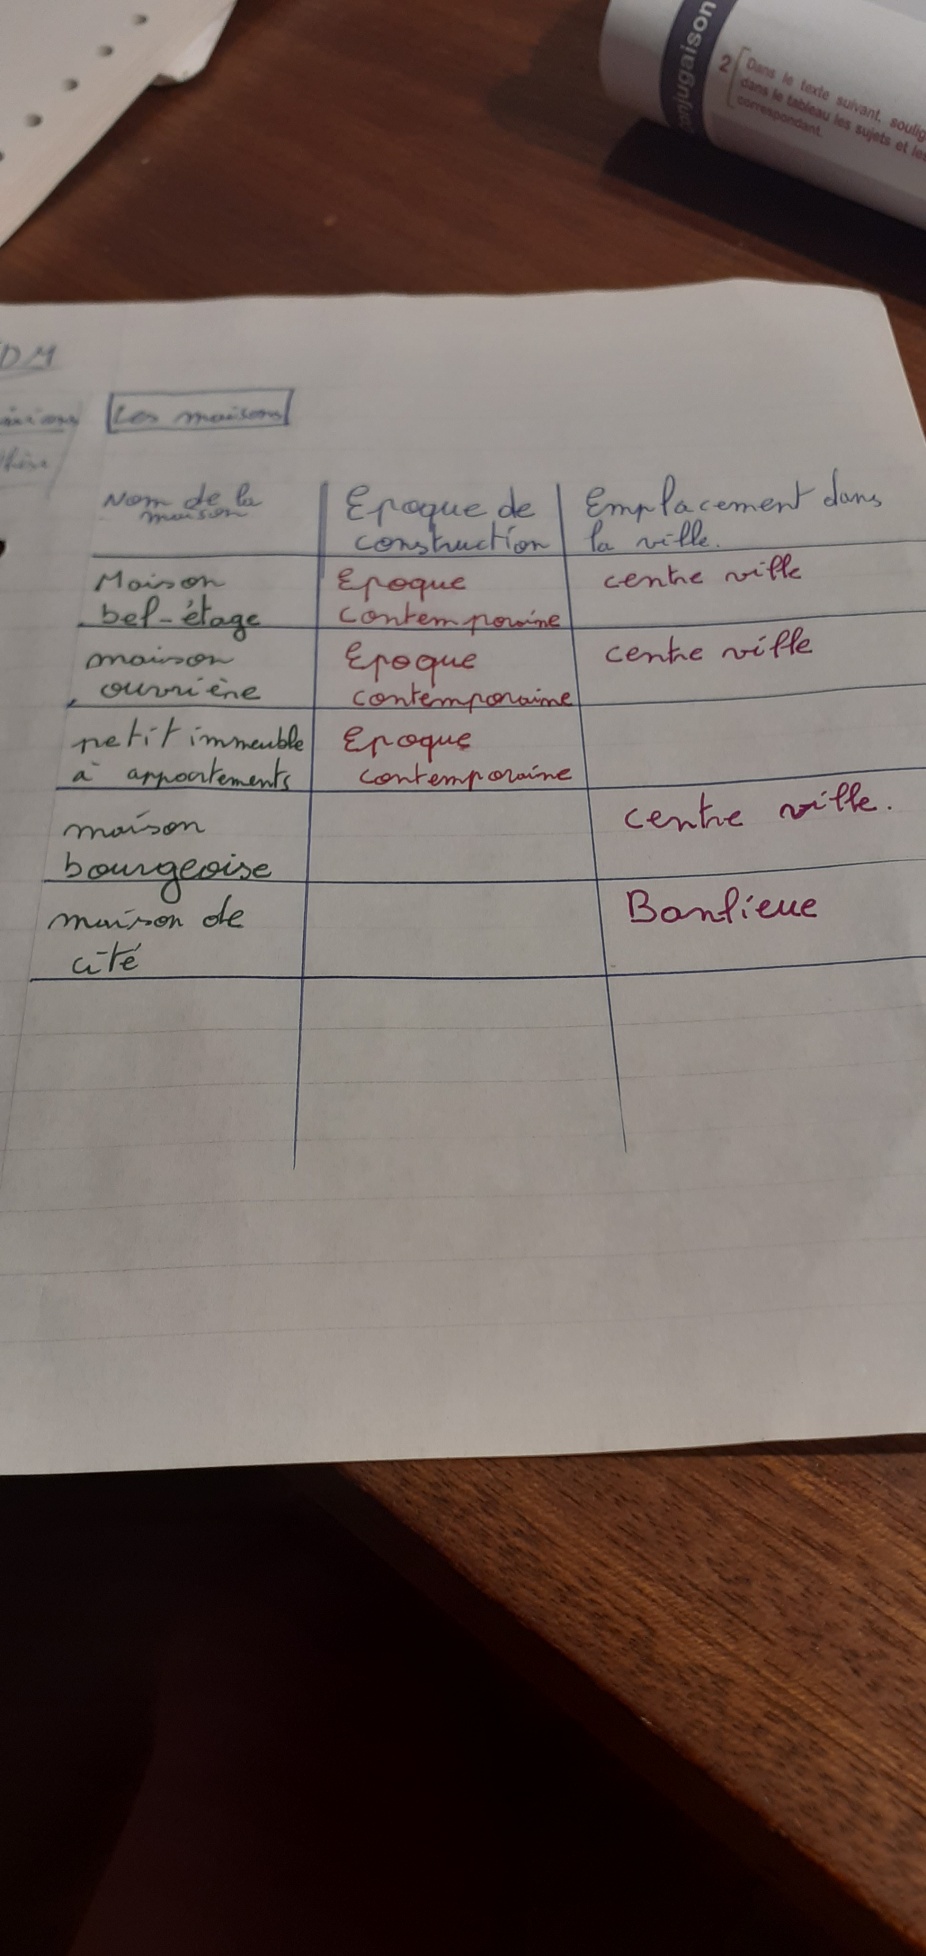 conjugaison
2 Dans le texte suivant, soulig
dans le tableau les sujets et les
correspondant.
DM
Les maisons
Nom de la
maison
Epoque de
construction
Emplacement dans
la ville.
Maison
bel-étage
Epoque
contemporaine
centre ville
maison
ouvrière
Epoque
contemporaine
centre ville
petit immeuble
à appartements
Epoque
contemporaine
maison
bourgeoise
centre ville.
maison de
cité
Banlieue